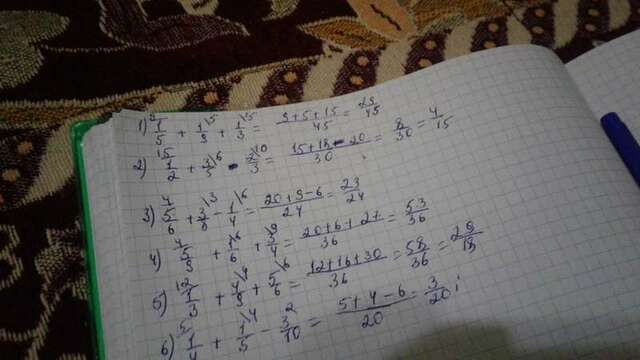 1) 1/5 + 1/9 + 1/3 = (9+5+15)/45 = 29/45
2) 1/2 + 3/5 - 2/3 = (15+18-20)/30 = 8/30 = 4/15
3) 5/6 + 3/8 - 1/4 = (20+9-6)/24 = 23/24
4) 5/9 + 1/6 + 3/4 = (20+6+27)/36 = 53/36
5) 1/3 + 4/9 + 5/6 = (12+16+30)/36 = 58/36 = 29/18
6) 1/4 + 1/5 - 3/10 = (5+4-6)/20 = 3/20;